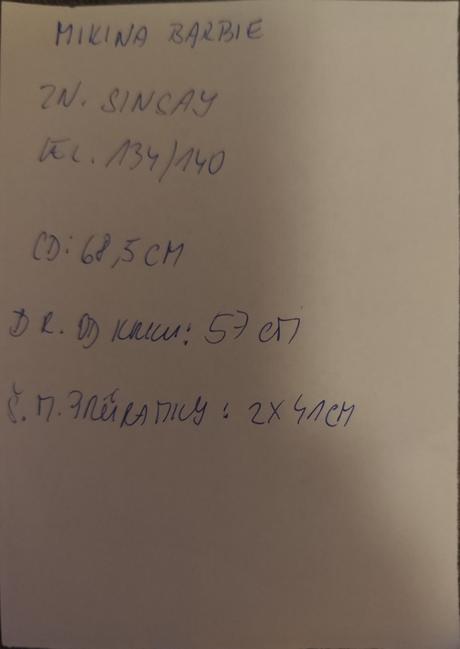 MIKINA BARBIE
ZN. SINSAY
VEL. 134/140
CD: 68,5 CM
DR. OD KRKU: 57 CM
Š. M. PRŮRAMKY: 2X41CM